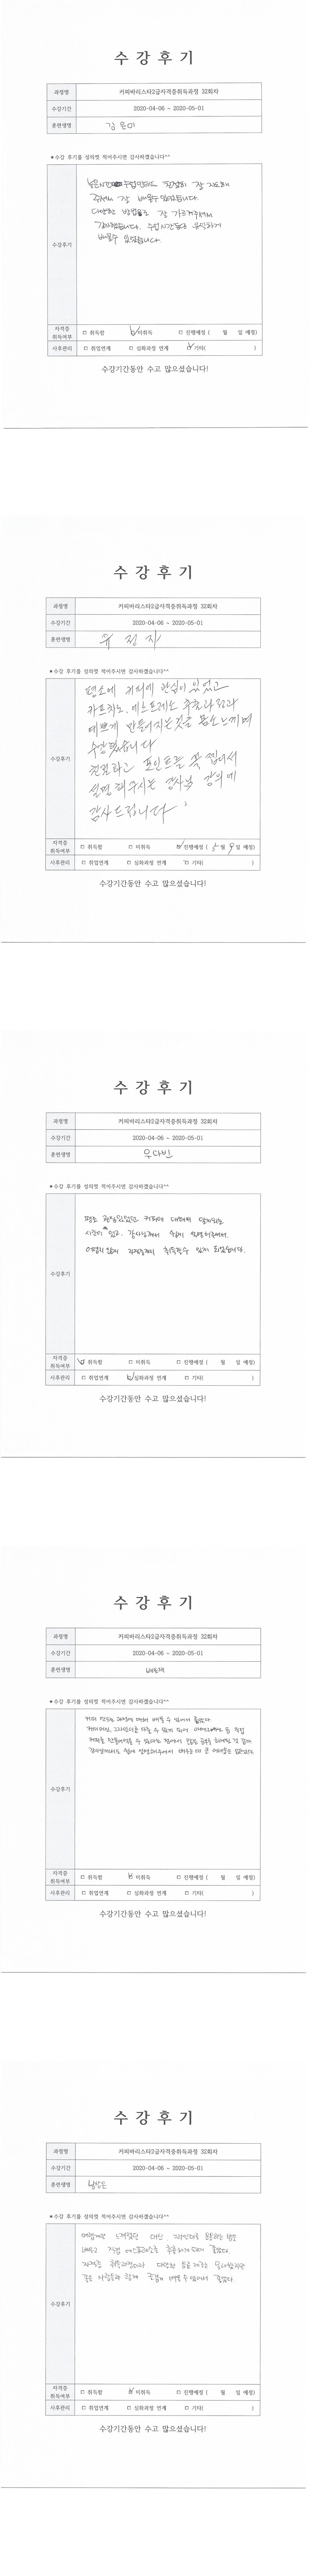 수 강 후 기
과정명 커피바리스타2급자격증취득과정 32회차
수강기간 2020-04-06 ~ 2020-05-01
훈련생명 김은미
*수강 후기를 성의껏 적어주시면 감사하겠습니다^^
수강후기
늦은시간 수업인데도 친절히 잘 지도해
주셔서 잘 배울수 있었습니다.
다양한 방법으로 잘 가르쳐주셔서
감사했습니다. 수업시간동안 유익하게
배울수 있었습니다.
자격증 취득여부 □ 취득함 □ 미취득 □ 진행예정 ( 월 일 예정)
사후관리 □ 취업연계 □ 심화과정 연계 □ 기타( )
수강기간동안 수고 많으셨습니다!
수 강 후 기
과정명 커피바리스타2급자격증취득과정 32회차
수강기간 2020-04-06 ~ 2020-05-01
훈련생명 유정자
*수강 후기를 성의껏 적어주시면 감사하겠습니다^^
수강후기
평소에 커피에 관심이 있었고
카푸치노, 에스프레소 추출과
예쁘게 만들어지는것을 몸소 느끼며
수강했습니다
친절하고 포인트를 콕 찝어서
설명해주시는 강사님 강의에
감사드립니다
자격증 취득여부 □ 취득함 □ 미취득 □ 진행예정 ( 5월 9일 예정)
사후관리 □ 취업연계 □ 심화과정 연계 □ 기타( )
수강기간동안 수고 많으셨습니다!
수 강 후 기
과정명 커피바리스타2급자격증취득과정 32회차
수강기간 2020-04-06 ~ 2020-05-01
훈련생명 우다빈
*수강 후기를 성의껏 적어주시면 감사하겠습니다^^
수강후기
평소 관심있었던 커피에 대해서 알게되는
시간이 었고, 강사님께서 쉽게 설명해주셔서,
어렵지 않게 자격증까지 취득할수 있게 되었습니다.
자격증 취득여부 □ 취득함 □ 미취득 □ 진행예정 ( 월 일 예정)
사후관리 □ 취업연계 □ 심화과정 연계 □ 기타( )
수강기간동안 수고 많으셨습니다!
수 강 후 기
과정명 커피바리스타2급자격증취득과정 32회차
수강기간 2020-04-06 ~ 2020-05-01
훈련생명
*수강 후기를 성의껏 적어주시면 감사하겠습니다^^
수강후기
커피 만드는 과정에 대해 배울 수 있어서 좋았다.
커피머신, 그라인더를 다룰 수 있게 되어 아메리카노 등 직접
커피를 만들어먹을 수 있다는
자격증 취득여부 □ 취득함 □ 미취득 □ 진행예정 ( 월 일 예정)
사후관리 □ 취업연계 □ 심화과정 연계 □ 기타( )
수강기간동안 수고 많으셨습니다!
수 강 후 기
과정명 커피바리스타2급자격증취득과정 32회차
수강기간 2020-04-06 ~ 2020-05-01
훈련생명
*수강 후기를 성의껏 적어주시면 감사하겠습니다^^
수강후기
어렵게만 느껴졌던 머신, 그라인더를 운용하는 방법
배우고 직접 에스프레소를 추출하게 되어 좋았다.
자격증 취득과정이라 다양한
같은 사람들과 함께 즐겁게 배울 수 있어서 좋았다.
자격증 취득여부 □ 취득함 □ 미취득 □ 진행예정 ( 월 일 예정)
사후관리 □ 취업연계 □ 심화과정 연계 □ 기타( )
수강기간동안 수고 많으셨습니다!